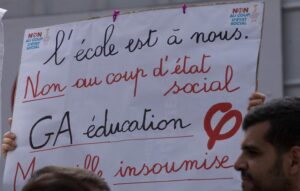 NON
AU COUP
D'ÉTAT
SOCIAL
NON
AU COUP
D'ÉTAT
SOCIAL
l'école est à nous.
Non au coup d'état
social
GA éducation φ
insoumise